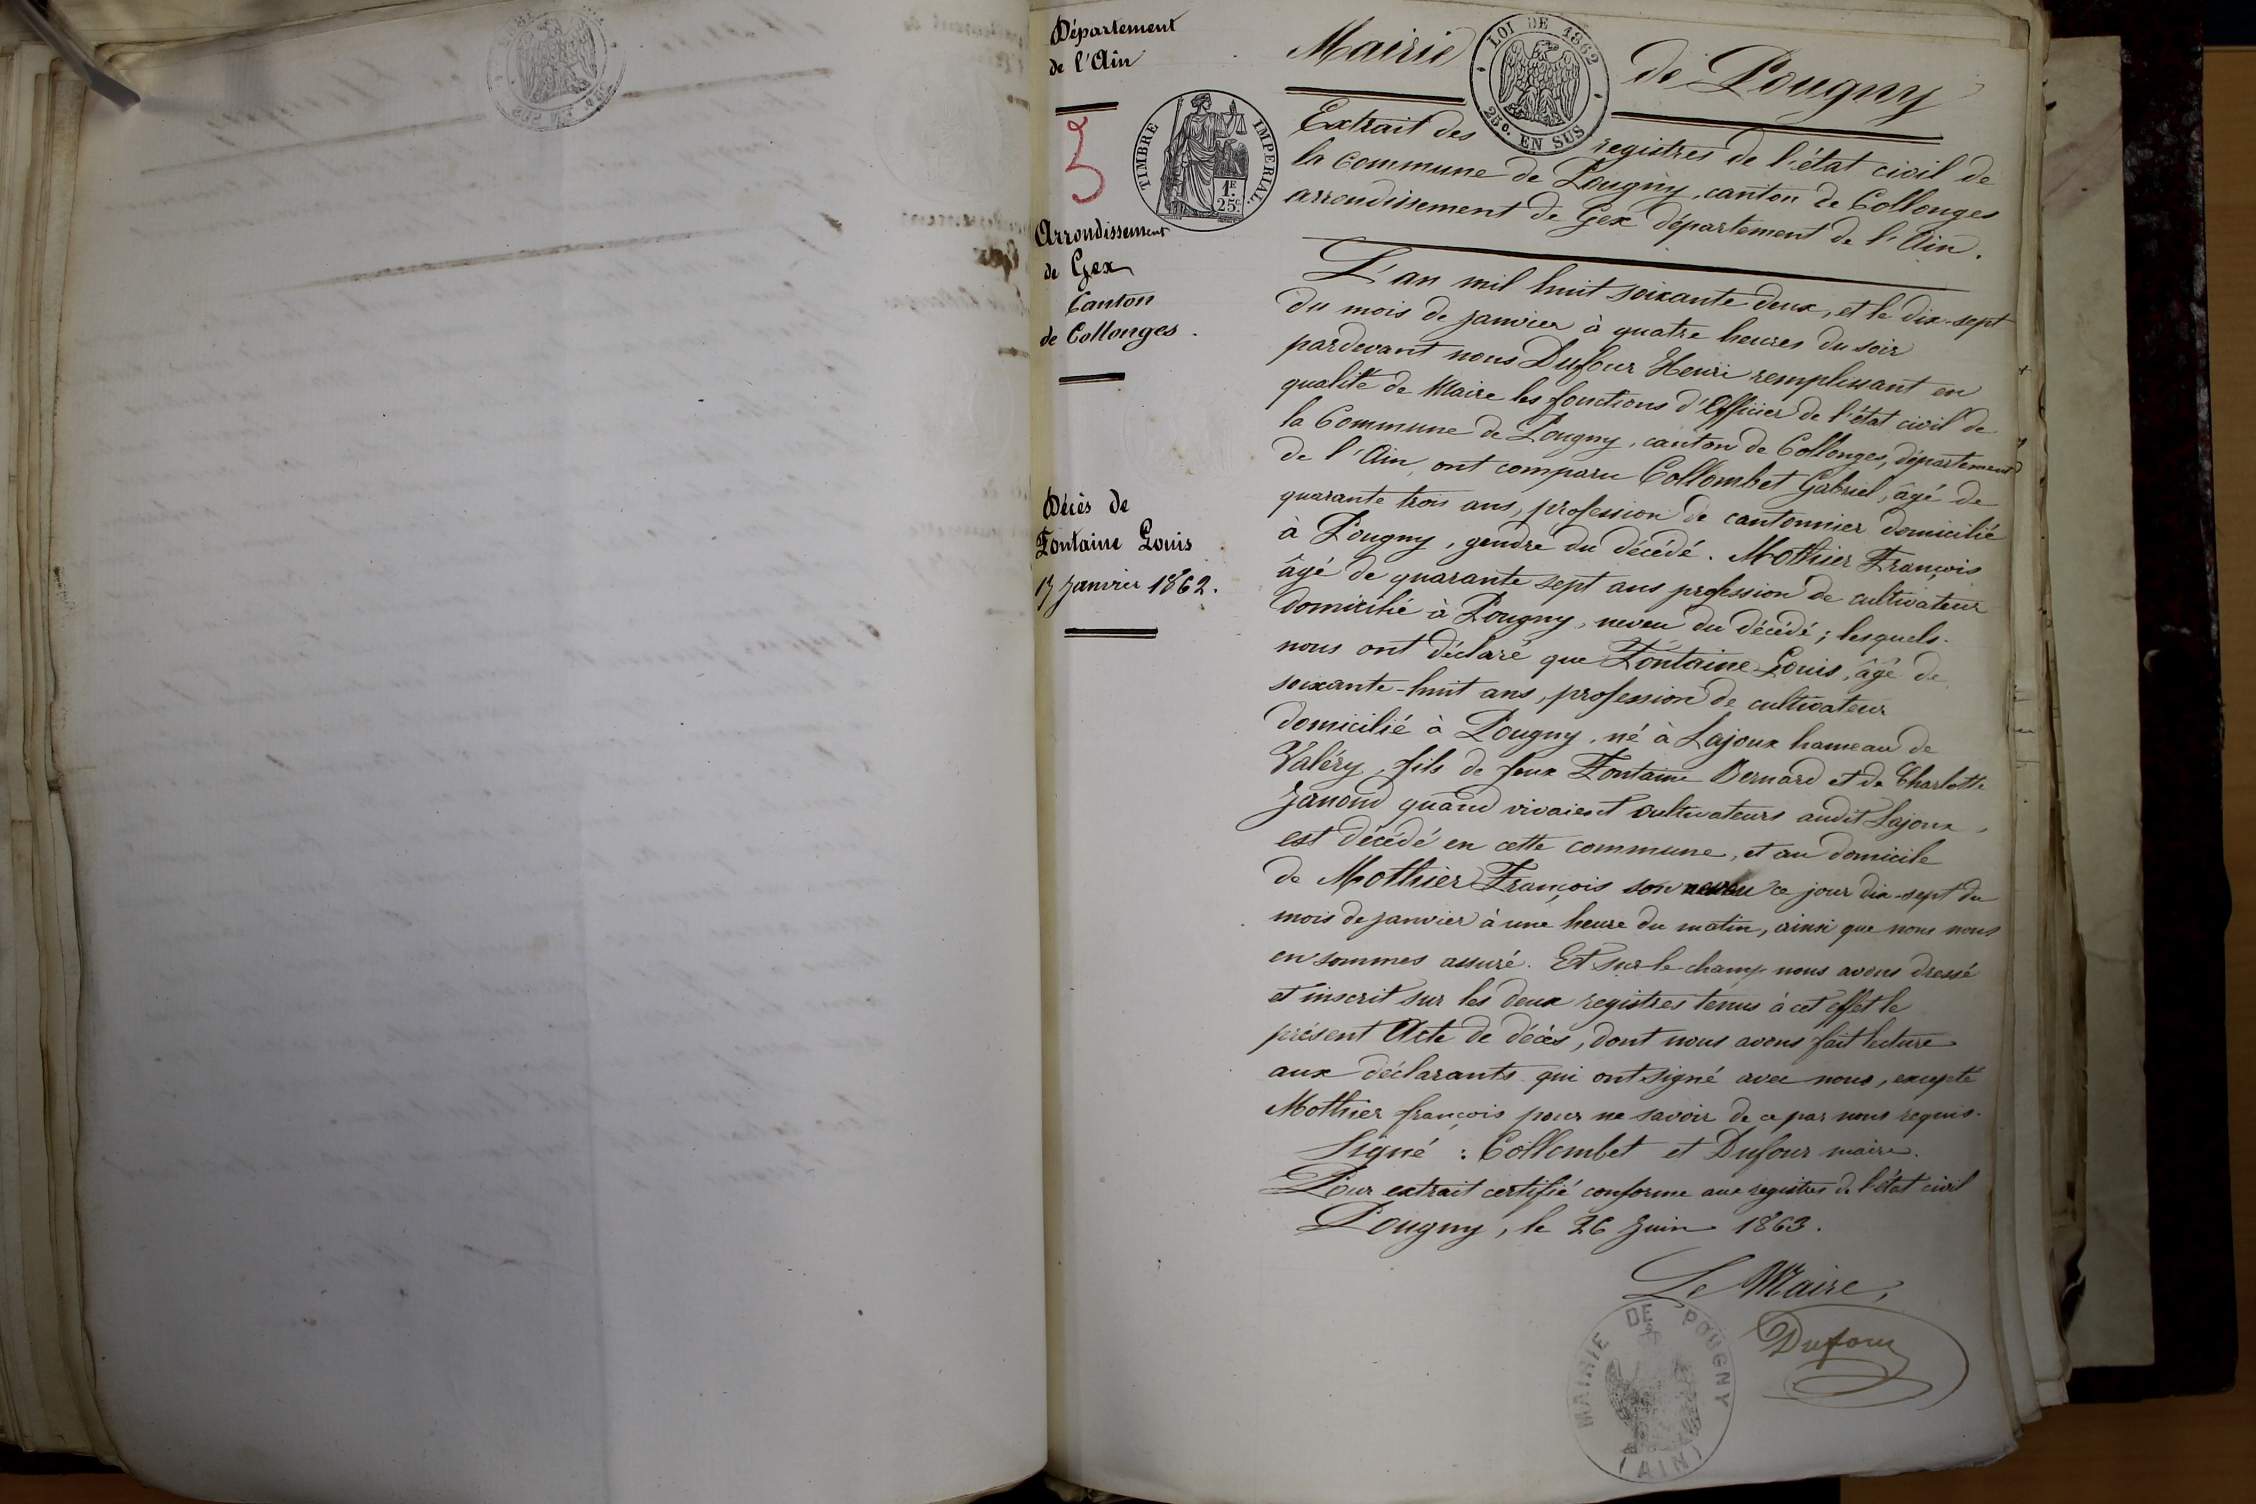 Département
de l'Ain
3
TIMBRE IMPERIAL
1F
25c.
Arrondissement
de Gex
Canton
de Collonges.
Décès de
Fontaine Louis
17 Janvier 1862.
Mairie de Pougny
LOI DE 1862
25c. EN SUS
Extrait des registres de l'état civil de
la commune de Pougny, canton de Collonges
arrondissement de Gex département de l'Ain.
L'an mil huit soixante deux, et le dix-sept
du mois de janvier à quatre heures du soir
pardevant nous Dufour Henri remplissant en
qualité de Maire les fonctions d'Officier de l'état civil de
la Commune de Pougny, canton de Collonges, département
de l'Ain, ont comparu Collombet Gabriel, âgé de
quarante trois ans, profession de cantonnier domicilié
à Pougny, gendre du décédé. Mothier François
âgé de quarante sept ans profession de cultivateur
domicilié à Pougny, neveu du décédé; lesquels
nous ont déclaré que Fontaine Louis, âgé de
soixante-huit ans, profession de cultivateur
domicilié à Pougny, né à Lajoux hameau de
Valéry, fils de feux Fontaine Bernard et de Charlotte
Janond quand vivaient cultivateurs audit Lajoux,
est décédé en cette commune, et au domicile
de Mothier François son neveu ce jour dix-sept du
mois de janvier à une heure du matin, ainsi que nous nous
en sommes assuré. Et sur le champ nous avons dressé
et inscrit sur les deux registres tenus à cet effet le
présent Acte de décès, dont nous avons fait lecture
aux déclarants qui ont signé avec nous, excepté
Mothier françois pour ne savoir de ce par nous requis.
Signé : Collombet et Dufour maire.
Pour extrait certifié conforme aux registres de l'état civil
Pougny, le 26 Juin 1863.
Le Maire,
Dufour
MAIRIE DE POUGNY
(AIN)